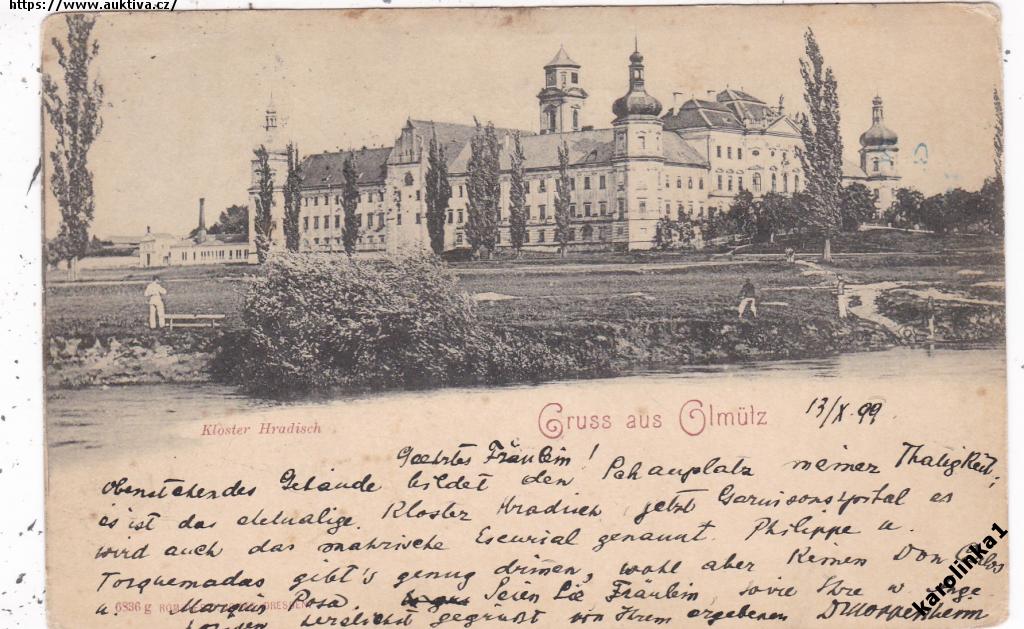 https://www.auktiva.cz/
Kloster Hradisch
Gruss aus Olmütz
13/X. 99.
Geehrtes Fräulein!
Obenstehendes Gebäude bildet den Schauplatz meiner Thätigkeit;
es ist das ehemalige Kloster Hradisch, jetzt Garnisonsspital es
wird auch das mährische Escurial genannt. Philippe u.
Torquemadas gibt's genug drinnen, wohl aber keinen Don Carlos
u. Marquis Posa. Seien Sie Fräulein, sowie Ihre w.
herzlichst gegrüßt von Ihrem ergebenen
6836 g
DRESDEN
karolinka1